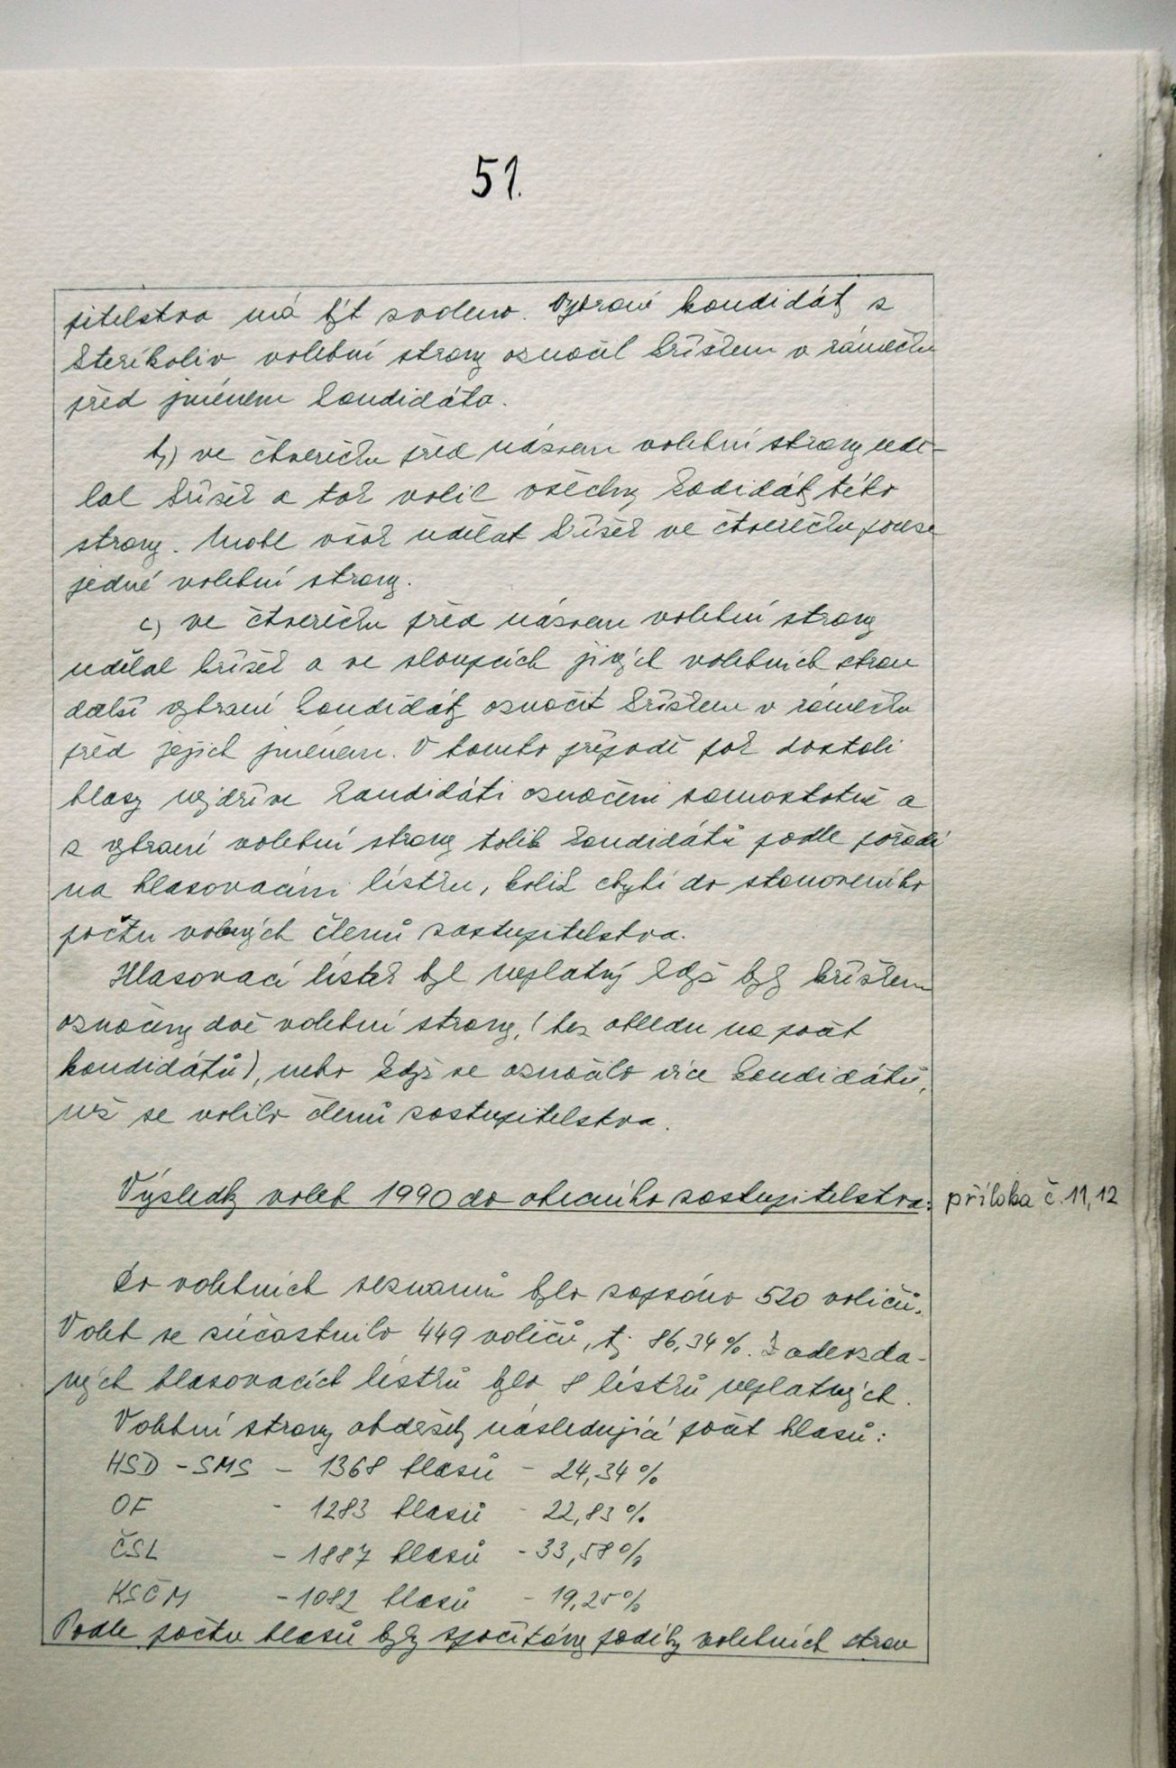 51.
pitelstva má být zvoleno. Vybrané kandidáty z
kterékoliv volební strany označil křížkem v rámečku
před jménem kandidáta.
b) ve čtverečku před názvem volební strany udě-
lal křížek a tak volil všechny kadidáty této
strany. Mohl však udělat křížek ve čtverečku pouze
jedné volební strany.
c) ve čtverečku před názvem volební strany
udělal křížek a ve sloupcích jiných volebních stran
další vybrané kandidáty označit křížkem v rámečku
před jejich jménem. V tomto případě pak dostali
hlasy nejdříve kandidáti označeni samostatně a
z vybrané volební strany tolik kandidátů podle pořadí
na hlasovacím lístku, kolik chybí do stanoveného
počtu volených členů zastupitelstva.
Hlasovací lístek byl neplatný když byly křížkem
označeny dvě volební strany, (bez ohledu na počet
kandidátů), nebo když se označilo více kandidátů,
než se volilo členů zastupitelstva.
Výsledky voleb 1990 do obecního zastupitelstva: příloha č. 11, 12
Do volebních seznamů bylo zapsáno 520 voličů.
Voleb se zúčastnilo 449 voličů, tj. 86,34 %. Z odevzda-
ných hlasovacích lístků bylo 8 lístků neplatných.
Volební strany obdržely následující počet hlasů:
HSD - SMS - 1368 hlasů - 24,34 %
OF - 1283 hlasů - 22,83 %
ČSL - 1887 hlasů - 33,58 %
KSČM - 1082 hlasů - 19,25 %
Podle počtu hlasů byly spočítány podíly volebních stran